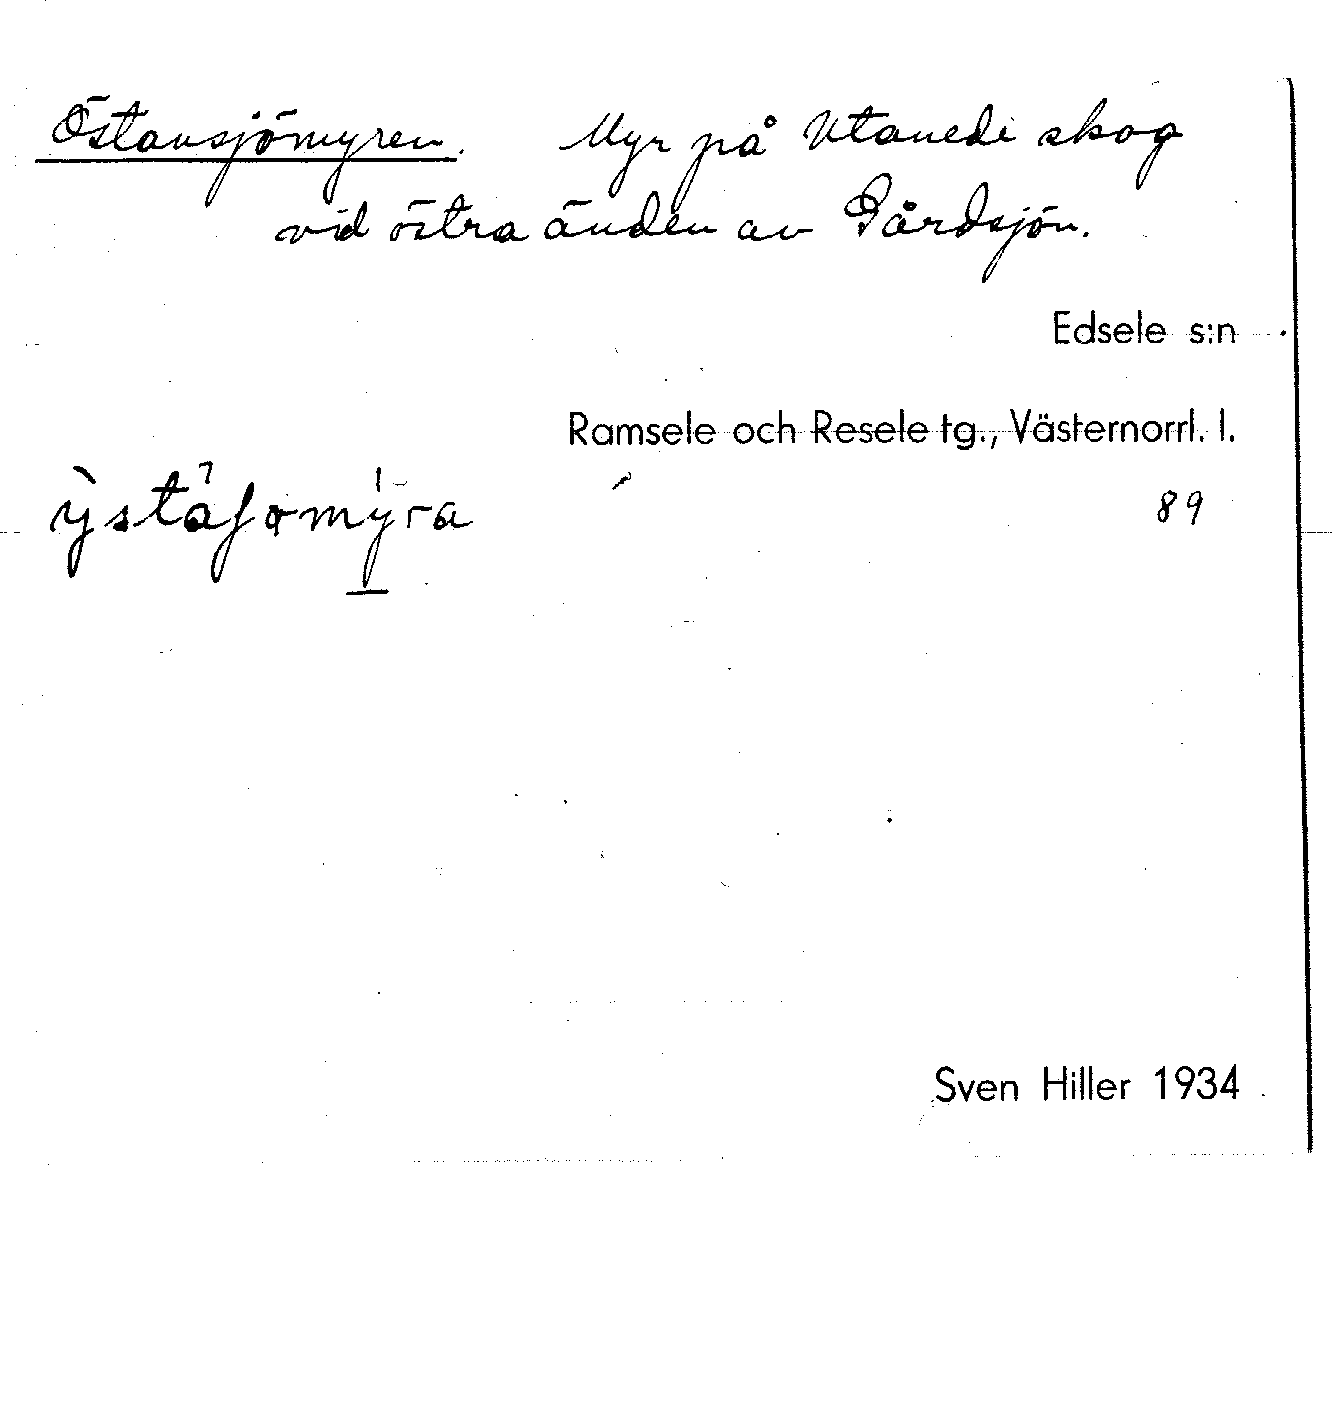 Östansjömyren. Myr på Utanede skog
vid östra änden av Gårdsjön.
Edsele s:n
Ramsele och Resele tg., Västernorrl. l.
89
Sven Hiller 1934